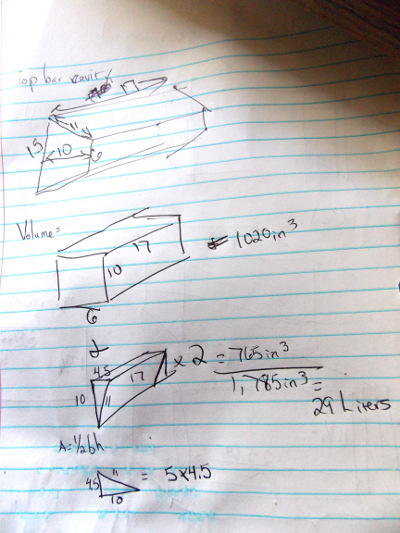 Top bar cavity
17
11
15
10
6
Volume=
17
10
6
= 1020in³
2
4.5
10
11
17
x 2 = 765in³
1,785in³ =
29 Liters
A=½bh
4.5
11
10
= 5x4.5